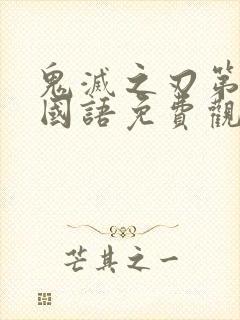 鬼滅之刃第
國語免費觀
芒其之一